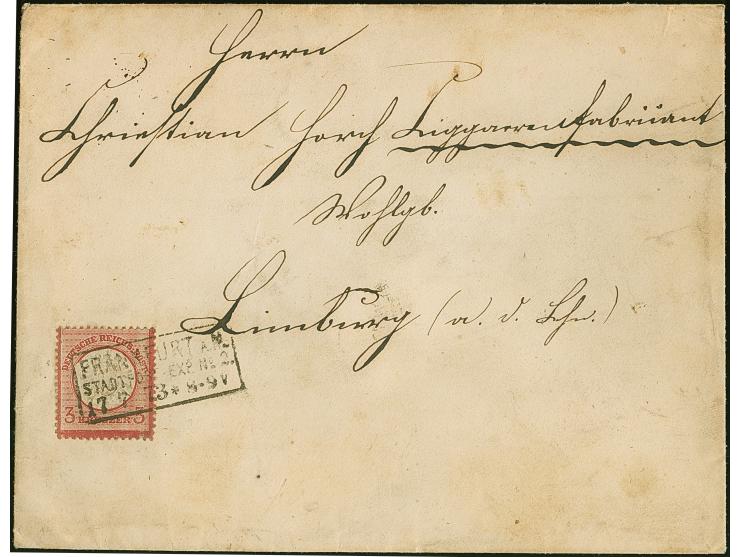 Herrn
Christian Horch Ciggaerenfabriǔant
Wohlgb.
Limburg (a. d. Lhn.)
DEUTSCHE REICHS-POST
3 KREUZER 3
FRANKFURT A.M.
STADTP. EXP. No 2.
17 73 * 8-9 V